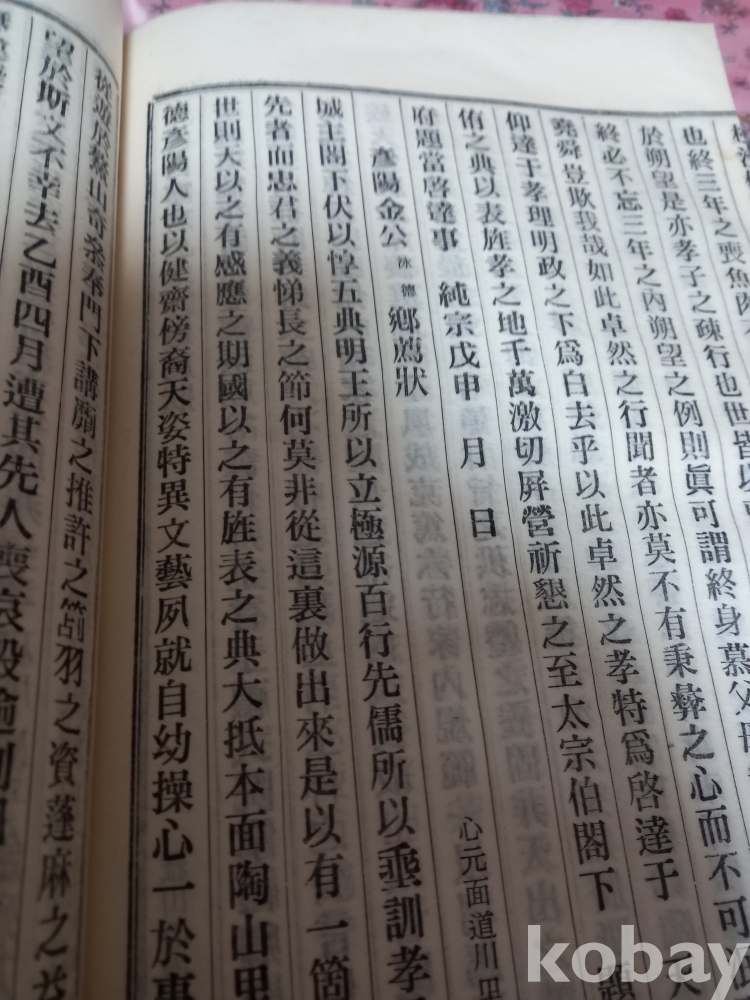 也終三年之喪魚肉
於朔望是亦孝子之疎行也世皆以
終必不忘三年之內朔望之例則眞可謂終身慕父母
堯舜豈欺我哉如此卓然之行聞者亦莫不有秉彝之心而不可
仰達于孝理明政之下爲白去乎以此卓然之孝特爲啓達于
侑之典以表旌孝之地千萬激切屛營祈懇之至太宗伯閤下
府題當啓達事 純宗戊申 月 日
彥陽金公 泳德 鄕薦狀 心元面道川里
城主閤下伏以惇五典明王所以立極源百行先儒所以垂訓孝
先者而忠君之義悌長之節何莫非從這裏做出來是以有一箇
世則天以之有感應之期國以之有旌表之典大抵本面陶山里
德彥陽人也以健齋傍裔天姿特異文藝夙就自幼操心一於事
從遊於 山奇 奉門下講 之推許之 羽之資蓬麻之
望於斯文不幸去乙酉四月遭其先人喪哀毁逾制
kobay